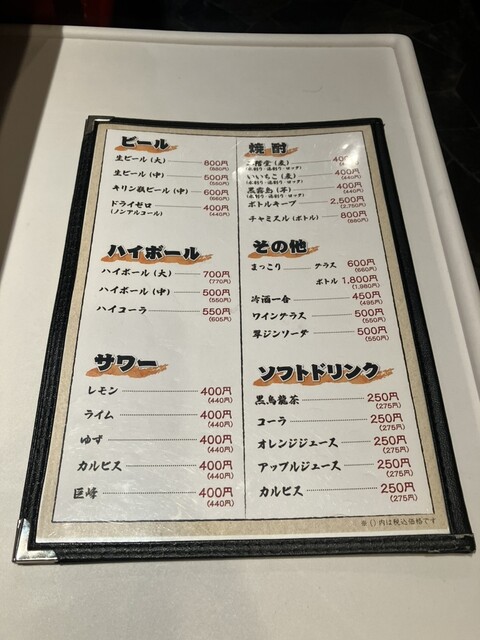 ビール
生ビール(大) 800円
(880円)
生ビール(中) 500円
(550円)
キリン瓶ビール(中) 600円
(660円)
ドライゼロ 400円
(ノンアルコール) (440円)
ハイボール
ハイボール(大) 700円
(770円)
ハイボール(中) 500円
(550円)
ハイコーラ 550円
(605円)
サワー
レモン 400円
(440円)
ライム 400円
(440円)
ゆず 400円
(440円)
カルピス 400円
(440円)
巨峰 400円
(440円)
焼酎
二階堂(麦)
(水割り・湯割り・ロック) (440円)
いいちこ(麦) 400円
(水割り・湯割り・ロック) (440円)
黒霧島(芋) 400円
(水割り・湯割り・ロック) (440円)
ボトルキープ 2,500円
(2,750円)
チャミスル(ボトル) 800円
(880円)
その他
まっこり グラス 600円
(660円)
ボトル 1,800円
(1,980円)
冷酒一合 450円
(495円)
ワイングラス 500円
(550円)
翠ジンソーダ 500円
(550円)
ソフトドリンク
黒烏龍茶 250円
(275円)
コーラ 250円
(275円)
オレンジジュース 250円
(275円)
アップルジュース 250円
(275円)
カルピス 250円
(275円)
※()内は税込価格です